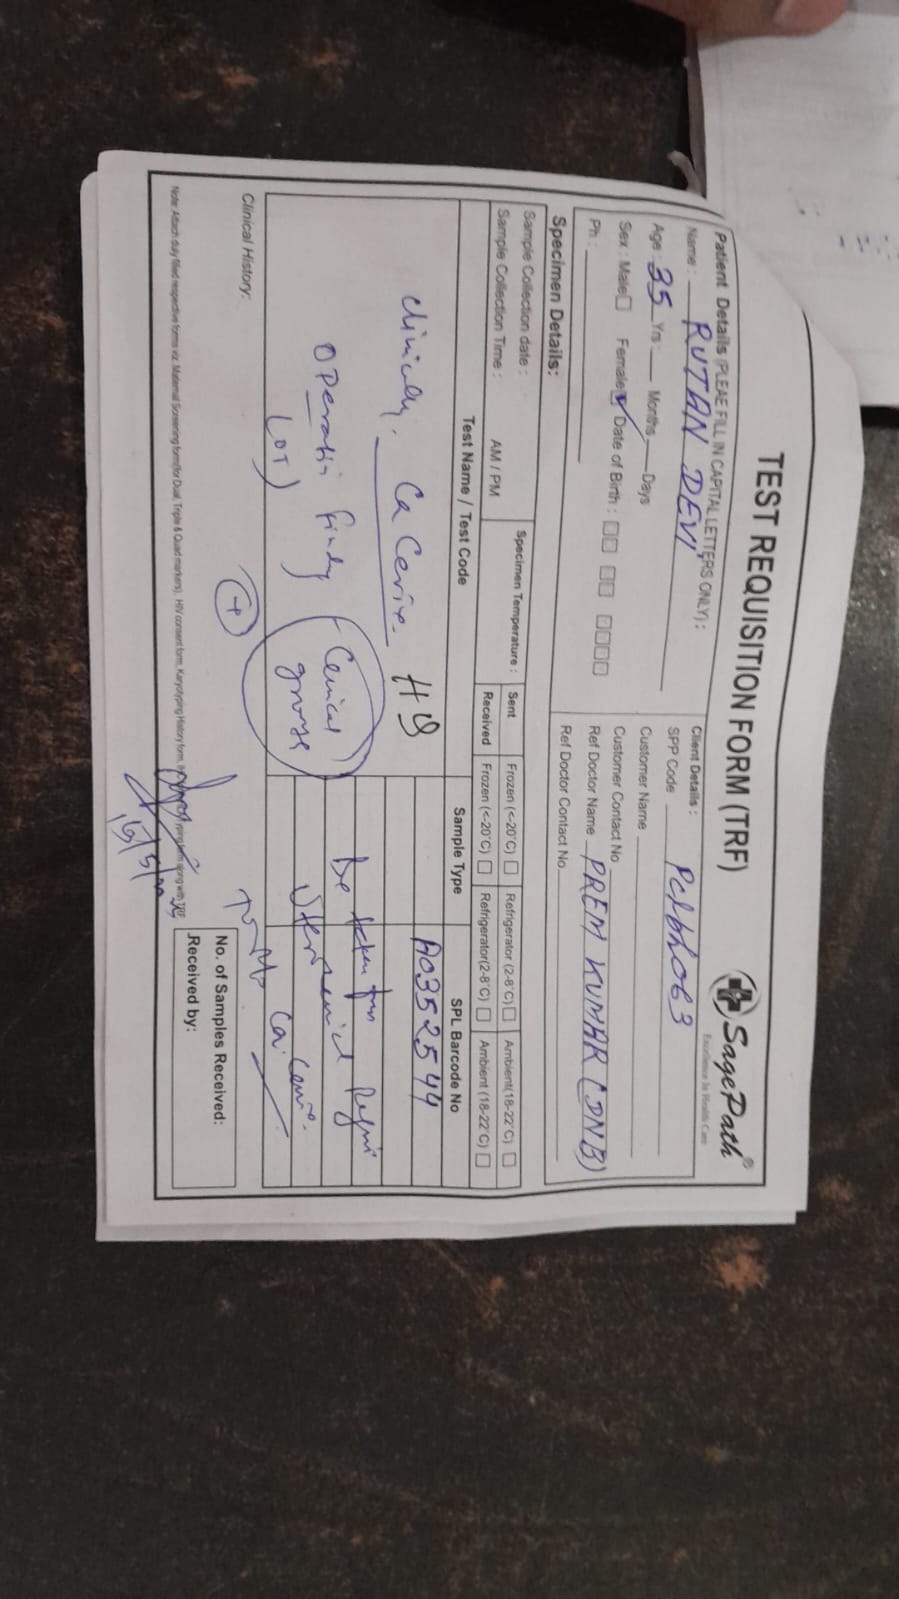 TEST REQUISITION FORM (TRF)
SagePath®
Excellence In Health Care
Patient Details (PLEAE FILL IN CAPITAL LETTERS ONLY) :
Name : RUTAN DEVI
Age : 35 Yrs : Months Days
Sex : Male Female Date of Birth :
Ph :
Client Details :
SPP Code
Customer Name
Customer Contact No
Ref Doctor Name PREM KUMAR (DNB)
Ref Doctor Contact No.
Specimen Details:
Sample Collection date :
Sample Collection Time : AM / PM
Specimen Temperature :
Sent Frozen (<-20°C) Refrigerator (2-8°C) Ambient(18-22°C)
Received Frozen (<-20°C) Refrigerator(2-8°C) Ambient (18-22°C)
Test Name / Test Code Sample Type SPL Barcode No
A0352544
Ca Cervix
(OT)
Cervical
Clinical History:
No. of Samples Received:
Received by:
Note: Attach duly filled respective forms viz. Maternal Screening form(for Dual, Triple & Quad markers), HIV consent form, Karyotyping History form, along with TRF